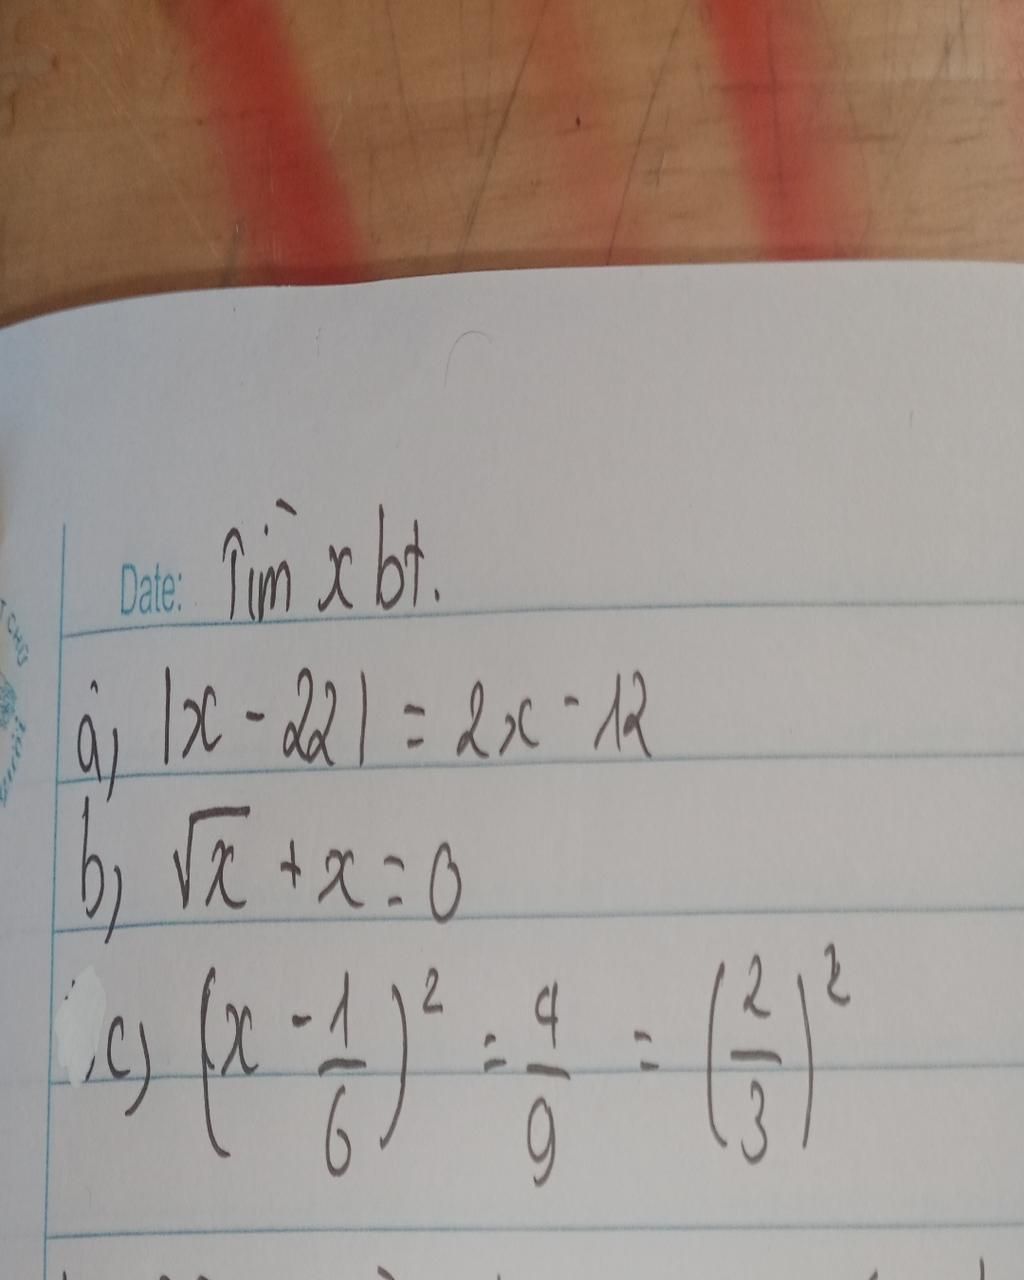 Date: Tìm x bt.
a, |x - 22| = 2x - 12
b, √x + x = 0
c) (x - 1/6)² = 4/9 = (2/3)²